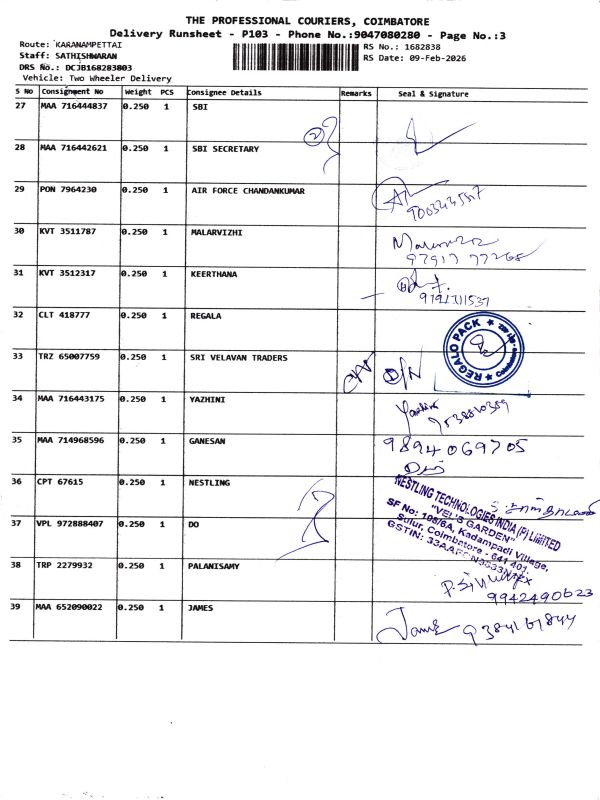 THE PROFESSIONAL COURIERS, COIMBATORE
Delivery Runsheet - P103 - Phone No.:9047080280 - Page No.:3
Route: KARANAMPETTAI
Staff: SATHISHWARAN
DRS No.: DCJB168283803
Vehicle: Two Wheeler Delivery
RS No.: 1682838
RS Date: 09-Feb-2026
S No Consignment No Weight PCS Consignee Details Remarks Seal & Signature
27 MAA 716444837 0.250 1 SBI
28 MAA 716442621 0.250 1 SBI SECRETARY
29 PON 7964230 0.250 1 AIR FORCE CHANDANKUMAR
30 KVT 3511787 0.250 1 MALARVIZHI
97917 77268
31 KVT 3512317 0.250 1 KEERTHANA
9791711537
32 CLT 418777 0.250 1 REGALA
REGALO PACK
33 TRZ 65007759 0.250 1 SRI VELAVAN TRADERS
34 MAA 716443175 0.250 1 YAZHINI
35 MAA 714968596 0.250 1 GANESAN
9894069705
36 CPT 67615 0.250 1 NESTLING
NESTLING TECHNOLOGIES INDIA (P) LIMITED
"VEL'S GARDEN"
SF No: 108/6A, Kadampadi Village,
Sulur, Coimbatore - 641 401.
37 VPL 972888407 0.250 1 DO
38 TRP 2279932 0.250 1 PALANISAMY
9942490623
39 MAA 652090022 0.250 1 JAMES
James 9384167844